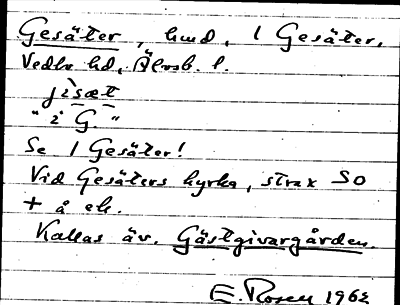 Gesäter, hmd, 1 Gesäter,
Vedbo hd, Älvsb. l.
jˋsæt
"i G."
Se 1 Gesäter!
Vid Gesäters kyrka, strax SO
+ å ek.
Kallas äv. Gästgivargården.
E. Rosen 1962